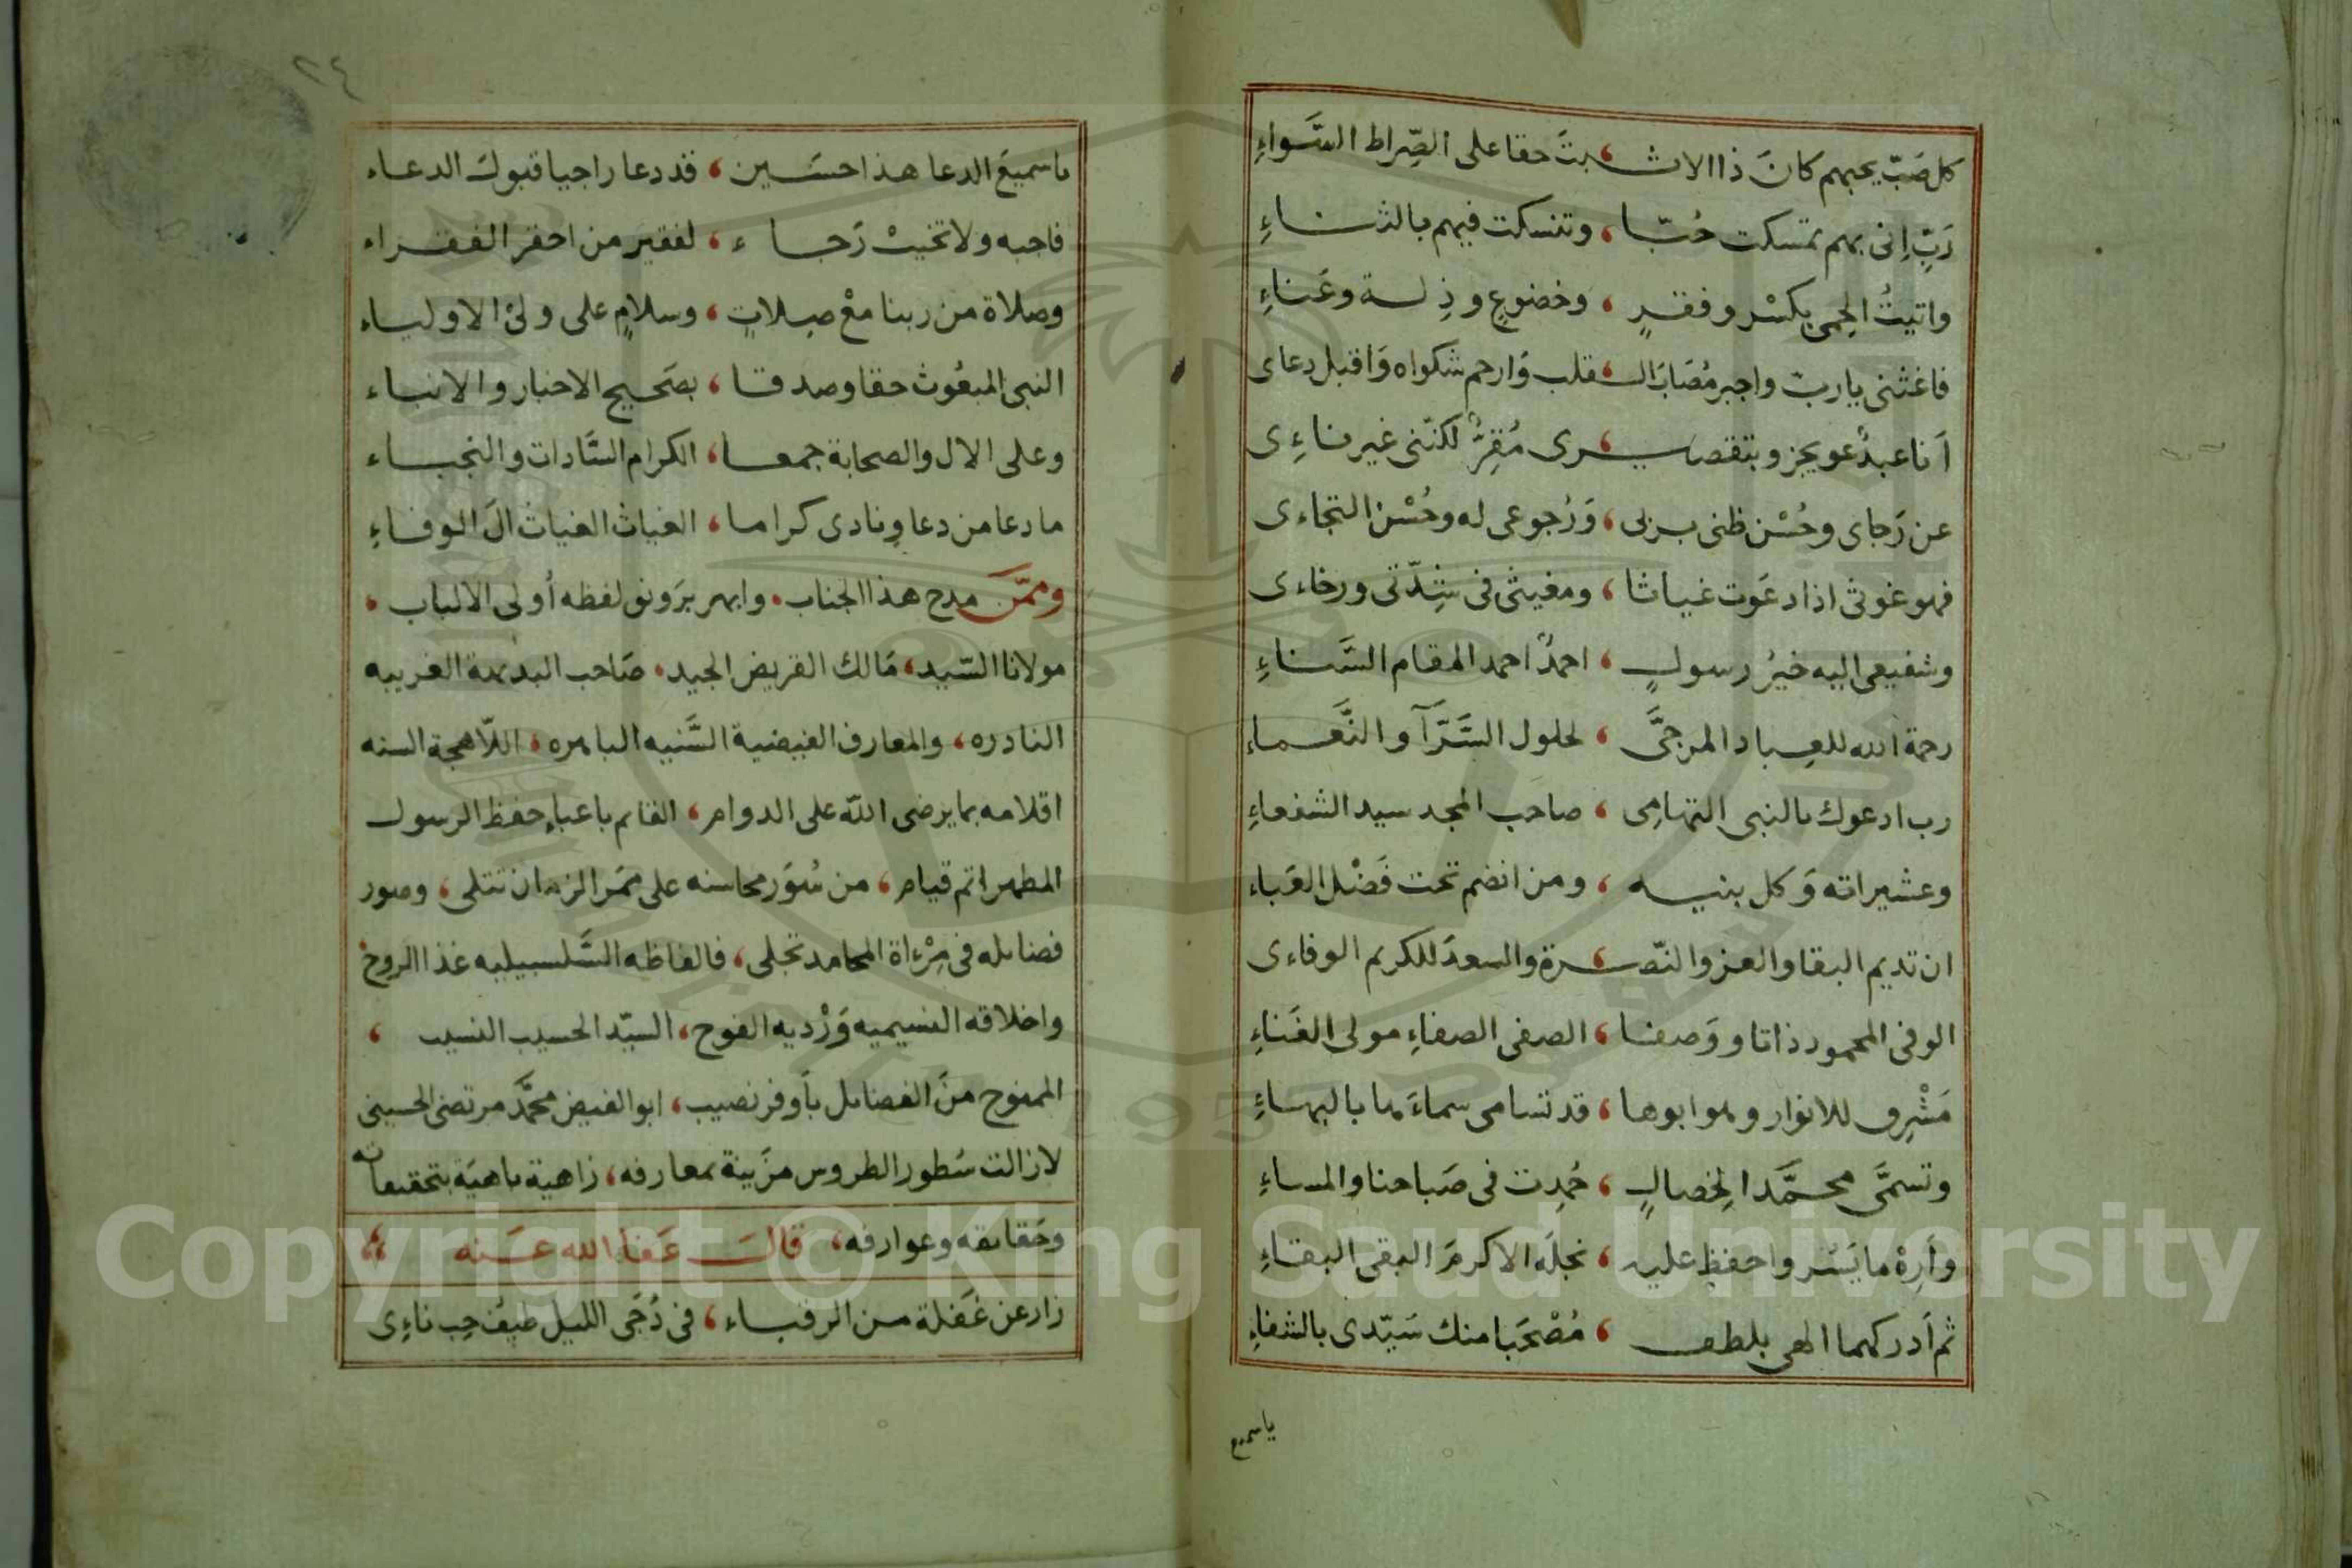 كل صَبّ يحبهم كانَ ذا الاثـ ، بتَ حقا على الصِّراط السَّواءِ
رَبِّ اِنى بهم تمسكت حُبّا ، وتنسكت فيهم بالثناءِ
واتيتُ الحِمى بكسْر وفقرٍ ، وخضوعٍ وذِلة وعَناءِ
فاغثنى يا ربّ واجبر مُصَابَ الـ ، قلب وَارحم شكواه وَاقبل دعاى
اَنا عبدٌ عو بحز وبتقصيـ ، ـرى مُقِرٌّ لكنّنى غير ناءِى
عن رَجاى وحُسْن ظنى بربى ، وَرُجوعى له وحُسْن التجاءى
فهو غوثى اذا دعَوت غياثا ، ومغيثى فى شِدّتى ورخاءى
وشفيعى اليه خيرُ رسولٍ ، احمدٌ احمد المقام السَّناءِ
رحمة الله للعِباد المرجَّى ، لحلول السَّرَّآ والنَّعماءِ
رب ادعوك بالنبى التهامِى ، صاحب المجد سيد الشفعاءِ
وعشيراته وَكل بنيه ، ومن انضم تحت فَضْل العَباءِ
ان تديم البقا والعز والنّصـ ، ـرة والسعدَ للكريم الوفاءى
الوفى المحمود ذاتا ووَصفا ، الصفى الصفاءِ مولى الغَناءِ
مَشْرِق للانوار وهو ابوها ، قد تسامى سماءَها بالبهاءِ
وتسمَّى محمَّدا لخِصالٍ ، حُمِدت فى صَباحنا والمساءِ
وَاَرِهْ ما يَسُر واحفظ عليه ، نجلَه الاكرمَ البقى البقاءِ
ثم اَدركهما الهى بلطف ، مُصْحَبا منك سَيّدى بالشفاءِ
ياسميع
٢٤
يا سميعَ الدعا هذا حسَين ، قد دعا راجيا قبولَ الدعاء
فاجبه ولا تخيبْ رَجاء ، لفقير من احقر الفقراء
وصلاة من ربنا معْ صِلاتٍ ، وسلامٍ على ولىْ الاولياء
النبى المبعُوث حقا وصدقا ، بصَحيح الاخبار والانباء
وعلى الال والصحابة جمعا ، الكرام السَّادات والنجباء
ما دعا من دعا ونادى كراما ، الغياث الغياث الَ الوفاءِ
وممّنَ مدح هذا الجناب ، وابهر برَونق لفظه أولى الالباب ،
مولانا السّيد ، مَالك القريض الجيد ، صَاحب البديهة الغريبه
النادره ، والمعارف الفيضية السَّنيه الباهره ، اللّاهجة السنه
اقلامه بما يرضى اللّه على الدوام ، القائم باعباءِ حفظ الرسول
المطهر اتم قيام ، من سُوَر محاسنه على ممَر الزمان تتلى ، وصور
فضائله فى مِرْءاة المحامد تجلى ، فالفاظه السَّلسبيليه غذا الروح
واخلاقه النسيميه وَرْديه الفوح ، السيّد الحسيب النسيب ،
الممنوح منَ الفضائل بأوفر نصيب ، ابو الفيض محمَّد مرتضى الحسينى
لا زالت سُطور الطروس مزَينة بمعارفه ، زاهية باهيَة بتحقيقاته
وحَقايقه وعوارفه ، قالَ عَفا الله عَنه ،
زار عن غَفلة من الرقباء ، فى دُجَى الليل طيفُ حِب ناءِى
Copyright © King Saud University
1957